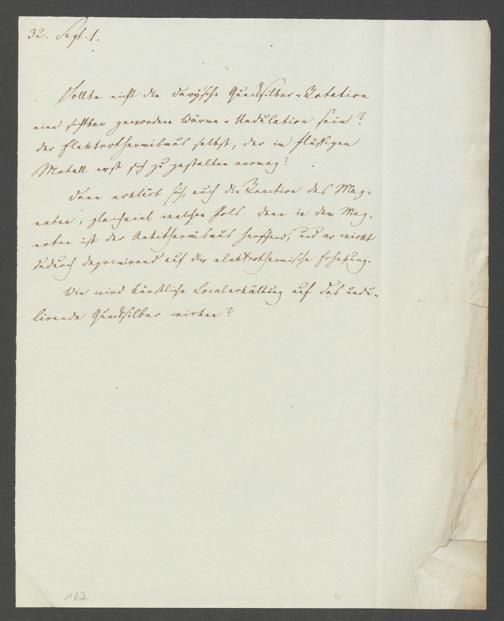 32. Sept. 1.
Sollte nicht die Davysche Quecksilber-Rotation
eine sichtbar gewordene Wärme-Undulation sein?
der Elektrothermismus selbst, der im flüssigen
Metall erst sich zu gestalten vermag?
Dann erklärt sich auch die Reaction des Mag-
neten, gleichviel welchen Pols. denn in dem Mag-
neten ist der Antithermismus herrschend, und er wirkt
dadurch deprimirend auf die elektrothermische Erhebung.
Wie wird künstliche Localerkältung auf das undu-
lirende Quecksilber wirken?